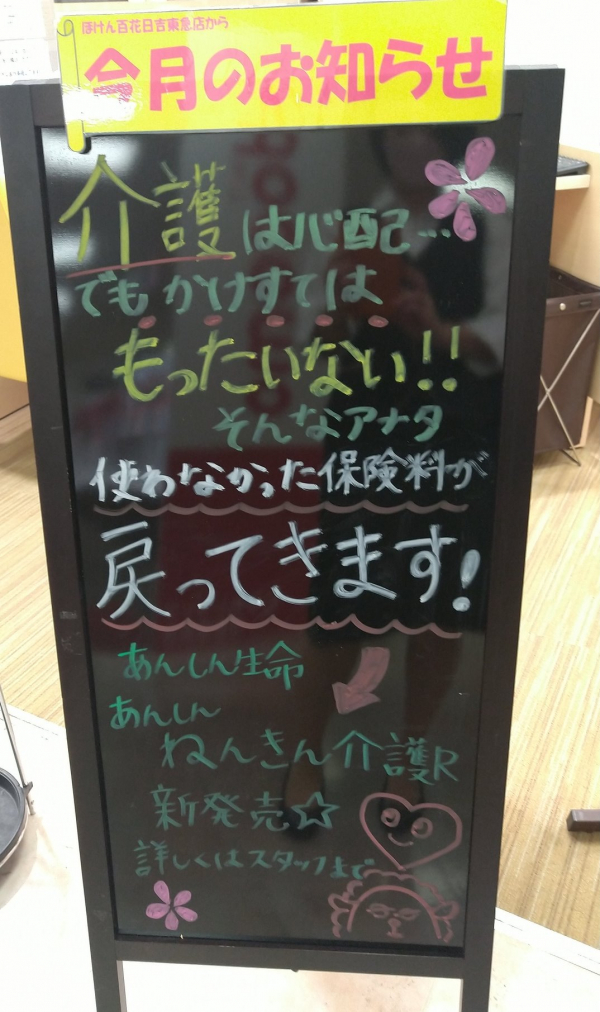 ほけん百花日吉東急店から
今月のお知らせ
介護は心配…
でもかけすては
もったいない!!
そんなアナタ
使わなかった保険料が
戻ってきます!
あんしん生命
あんしん
ねんきん介護R
新発売☆
詳しくはスタッフまで